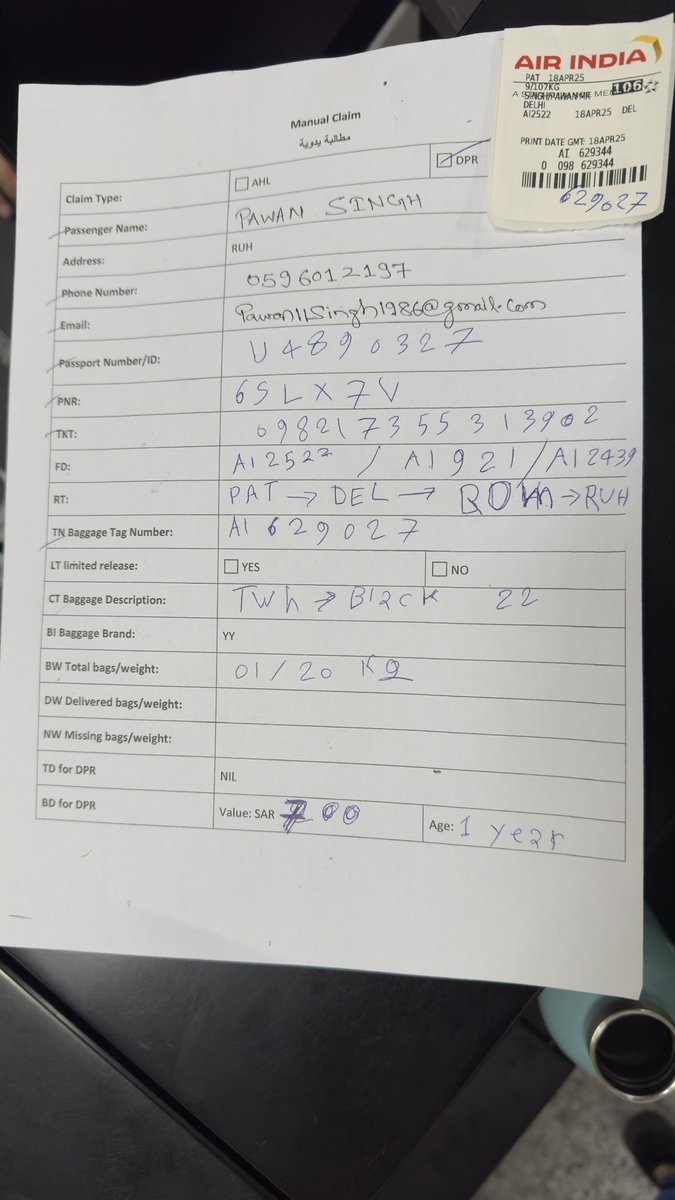 AIR INDIA
PAT 18APR25
9/107KG
106
DELHI
AI2522 18APR25 DEL
PRINT DATE GMT: 18APR25
AI 629344
0 098 629344
629027
Manual Claim
مطالبة يدوية
Claim Type: AHL DPR
Passenger Name: PAWAN SINGH
Address: RUH
Phone Number: 0596012197
Email: Pawan11Singh1986@gmail.com
Passport Number/ID: U4890327
PNR: 6SLX7V
TKT: 0982173553 13902
FD: AI2522 / AI921 / AI2439
RT: PAT → DEL → BOM → RUH
TN Baggage Tag Number: AI 629027
LT limited release: YES NO
CT Baggage Description: → Black 22
BI Baggage Brand: YY
BW Total bags/weight: 01/20 Kg
DW Delivered bags/weight:
NW Missing bags/weight:
TD for DPR NIL
BD for DPR Value: SAR Age: 1 year